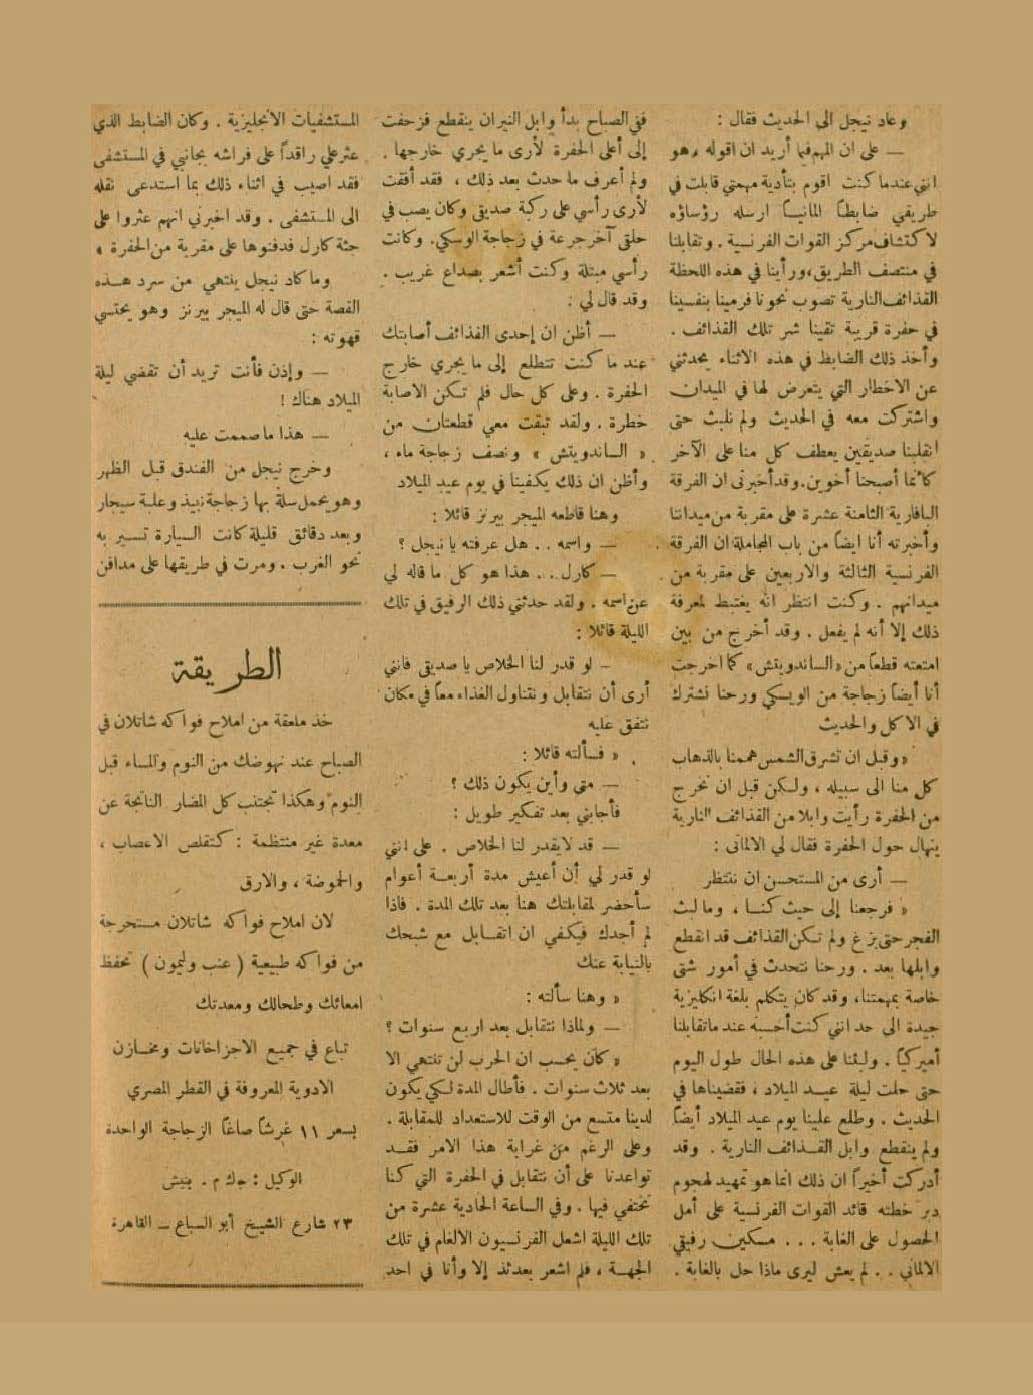 وعاد نيجل الى الحديث فقال :
— على ان المهم فيما أريد ان اقوله ، هو
انني عندما كنت اقوم بتأدية مهمتي قابلت في
طريقي ضابطاً المانيـاً ارسله رؤساؤه
لاكتشاف مركز القوات الفرنسية . وتقابلنا
في منتصف الطريق ، ورأينا في هذه اللحظة
القذائف النارية تصوب نحونا فرمينا بنفسينا
في حفرة قريبة تقينا شر تلك القذائف .
وأخذ ذلك الضابط في هذه الاثناء يحدثني
عن الاخطار التي يتعرض لها في الميدان
واشتركت معه في الحديث ولم نلبث حتى
انقلبنا صديقين يعطف كل منا على الآخر
كأنما أصبحنا أخوين . وقد أخبرنى ان الفرقة
البافارية الثامنة عشرة على مقربة من ميداننا
وأخبرته أنا ايضاً من باب المجاملة ان الفرقة
الفرنسية الثالثة والاربعين على مقربة من
ميدانهم . وكنت انتظر انه يغتبط لمعرفة
ذلك إلا أنه لم يفعل . وقد أخرج من بين
امتعته قطعاً من «الساندويتش» كما اخرجت
أنا أيضاً زجاجة من الويسكي ورحنا نشترك
في الاكل والحديث
« وقبل ان تشرق الشمس هممنا بالذهاب
كل منا الى سبيله ، ولكن قبل ان نخرج
من الحفرة رأيت وابلا من القذائف النارية
ينهال حول الحفرة فقال لي الالمانى :
— أرى من المستحسن ان ننتظر
« فرجعنا إلى حيث كنـا ، وما لبث
الفجر حتى بزغ ولم تكن القذائف قد انقطع
وابلها بعد . ورحنا نتحدث في أمور شتى
خاصة بمهمتنا ، وقد كان يتكلم بلغة انكليزية
جيدة الى حد انني كنت أحسبه عند ما تقابلنا
أميركياً . ولبثنا على هذه الحال طول اليوم
حتى حلت ليلة عيـد الميلاد ، فقضيناها في
الحديث . وطلع علينا يوم عيد الميلاد أيضاً
ولم ينقطع وابل القـذائف النارية . وقد
أدركت أخيراً ان ذلك انما هو تمهيد لهجوم
دبر خطته قائد القوات الفرنسية على أمل
الحصول على الغابة . . . مسكين رفيقي
الالماني . . لم يعش ليرى ماذا حل بالغابة .
ففي الصباح بدأ وابل النيران ينقطع فزحفت
إلى أعلى الحفرة لأرى ما يجري خارجها .
ولم أعرف ما حدث بعد ذلك ، فقد أفقت
لأرى رأسي على ركبة صديقي وكان يصب في
حلقي آخر جرعة في زجاجة الوسكي . وكانت
رأسي مبتلة وكنت أشعر بصداع غريب .
وقد قال لي :
— أظن ان إحدى القذائف أصابتك
عند ما كنت تتطلع إلى ما يجري خارج
الحفرة . وعلى كل حال فلم تكن الاصابة
خطرة . ولقد تبقت معي قطعتان من
« الساندويتش » ونصف زجاجة ماء ،
وأظن ان ذلك يكفينا في يوم عيد الميلاد
وهنا قاطعه الميجر بيرنز قائلا :
— واسمه . . هل عرفته يا نيجل ؟
— كارل . . . هذا هو كل ما قاله لي
عن اسمه . ولقد حدثني ذلك الرفيق في تلك
الليلة قائلا :
— لو قدر لنا الخلاص يا صديقي فانني
أرى أن نتقابل ونتناول الغذاء معاً في مكان
نتفق عليه
« فسألته قائلا :
— متى وأين يكون ذلك ؟
فأجابني بعد تفكير طويل :
— قد لايقدر لنا الخلاص . على انني
لو قدر لي أن أعيش مدة أربعـة أعوام
سأحضر لمقابلتك هنا بعد تلك المدة . فاذا
لم أجدك فيكفي ان اتقـابل مع شبحك
بالنيابة عنك
« وهنا سألته :
— ولماذا نتقابل بعد اربع سنوات ؟
« كان يحسب ان الحرب لن تنتهي الا
بعد ثلاث سنوات . فأطال المدة لكي يكون
لدينا متسع من الوقت للاستعداد للمقابلة .
وعلى الرغم من غرابة هذا الامر فقـد
تواعدنا على أن نتقابل في الحفرة التي كنا
نختفي فيها . وفي الساعة الحادية عشرة من
تلك الليلة اشعل الفرنسيون الالغام في تلك
الجهة ، فلم اشعر بعدئذ إلا وأنا في احد
المستشفيات الانجليزية . وكان الضابط الذي
عثر علي راقداً على فراشه بجانبي في المستشفى
فقد اصيب في اثناء ذلك بما استدعى نقله
الى المستشفى . وقد اخبرني انهم عثروا على
جثة كارل فدفنوها على مقربة من الحفرة »
وما كاد نيجل ينتهي من سرد هـذه
القصة حتى قال له الميجر بيرنز وهو يحتسي
قهوته :
— وإذن فأنت تريد أن تقضي ليلة
الميلاد هناك !
— هذا ما صممت عليه
وخرج نيجل من الفندق قبل الظهر
وهو يحمل سلة بها زجاجة نبيذ وعلبة سيجار
وبعد دقائق قليلة كانت السيارة تسير به
نحو الغرب . ومرت في طريقها على مدافن
الطريقة
خذ ملعقة من املاح فواكه شاتلان في
الصباح عند نهوضك من النوم والمساء قبل
النوم وهكذا تجتنب كل المضار الناتجة عن
معدة غير منتظمة : كتقلص الاعصاب ،
والحموضة ، والارق
لان املاح فواكه شاتلان مستخرجة
من فواكه طبيعية ( عنب وليمون ) تحفظ
امعائك وطحالك ومعدتك
تباع في جميع الاجزاخانات ومخـازن
الادوية المعروفة في القطر المصري
بسعر ١١ غرشاً صاغاً الزجاجة الواحدة
الوكيل : جاك م . بينيش
٢٣ شارع الشيخ أبو السباع — القاهرة